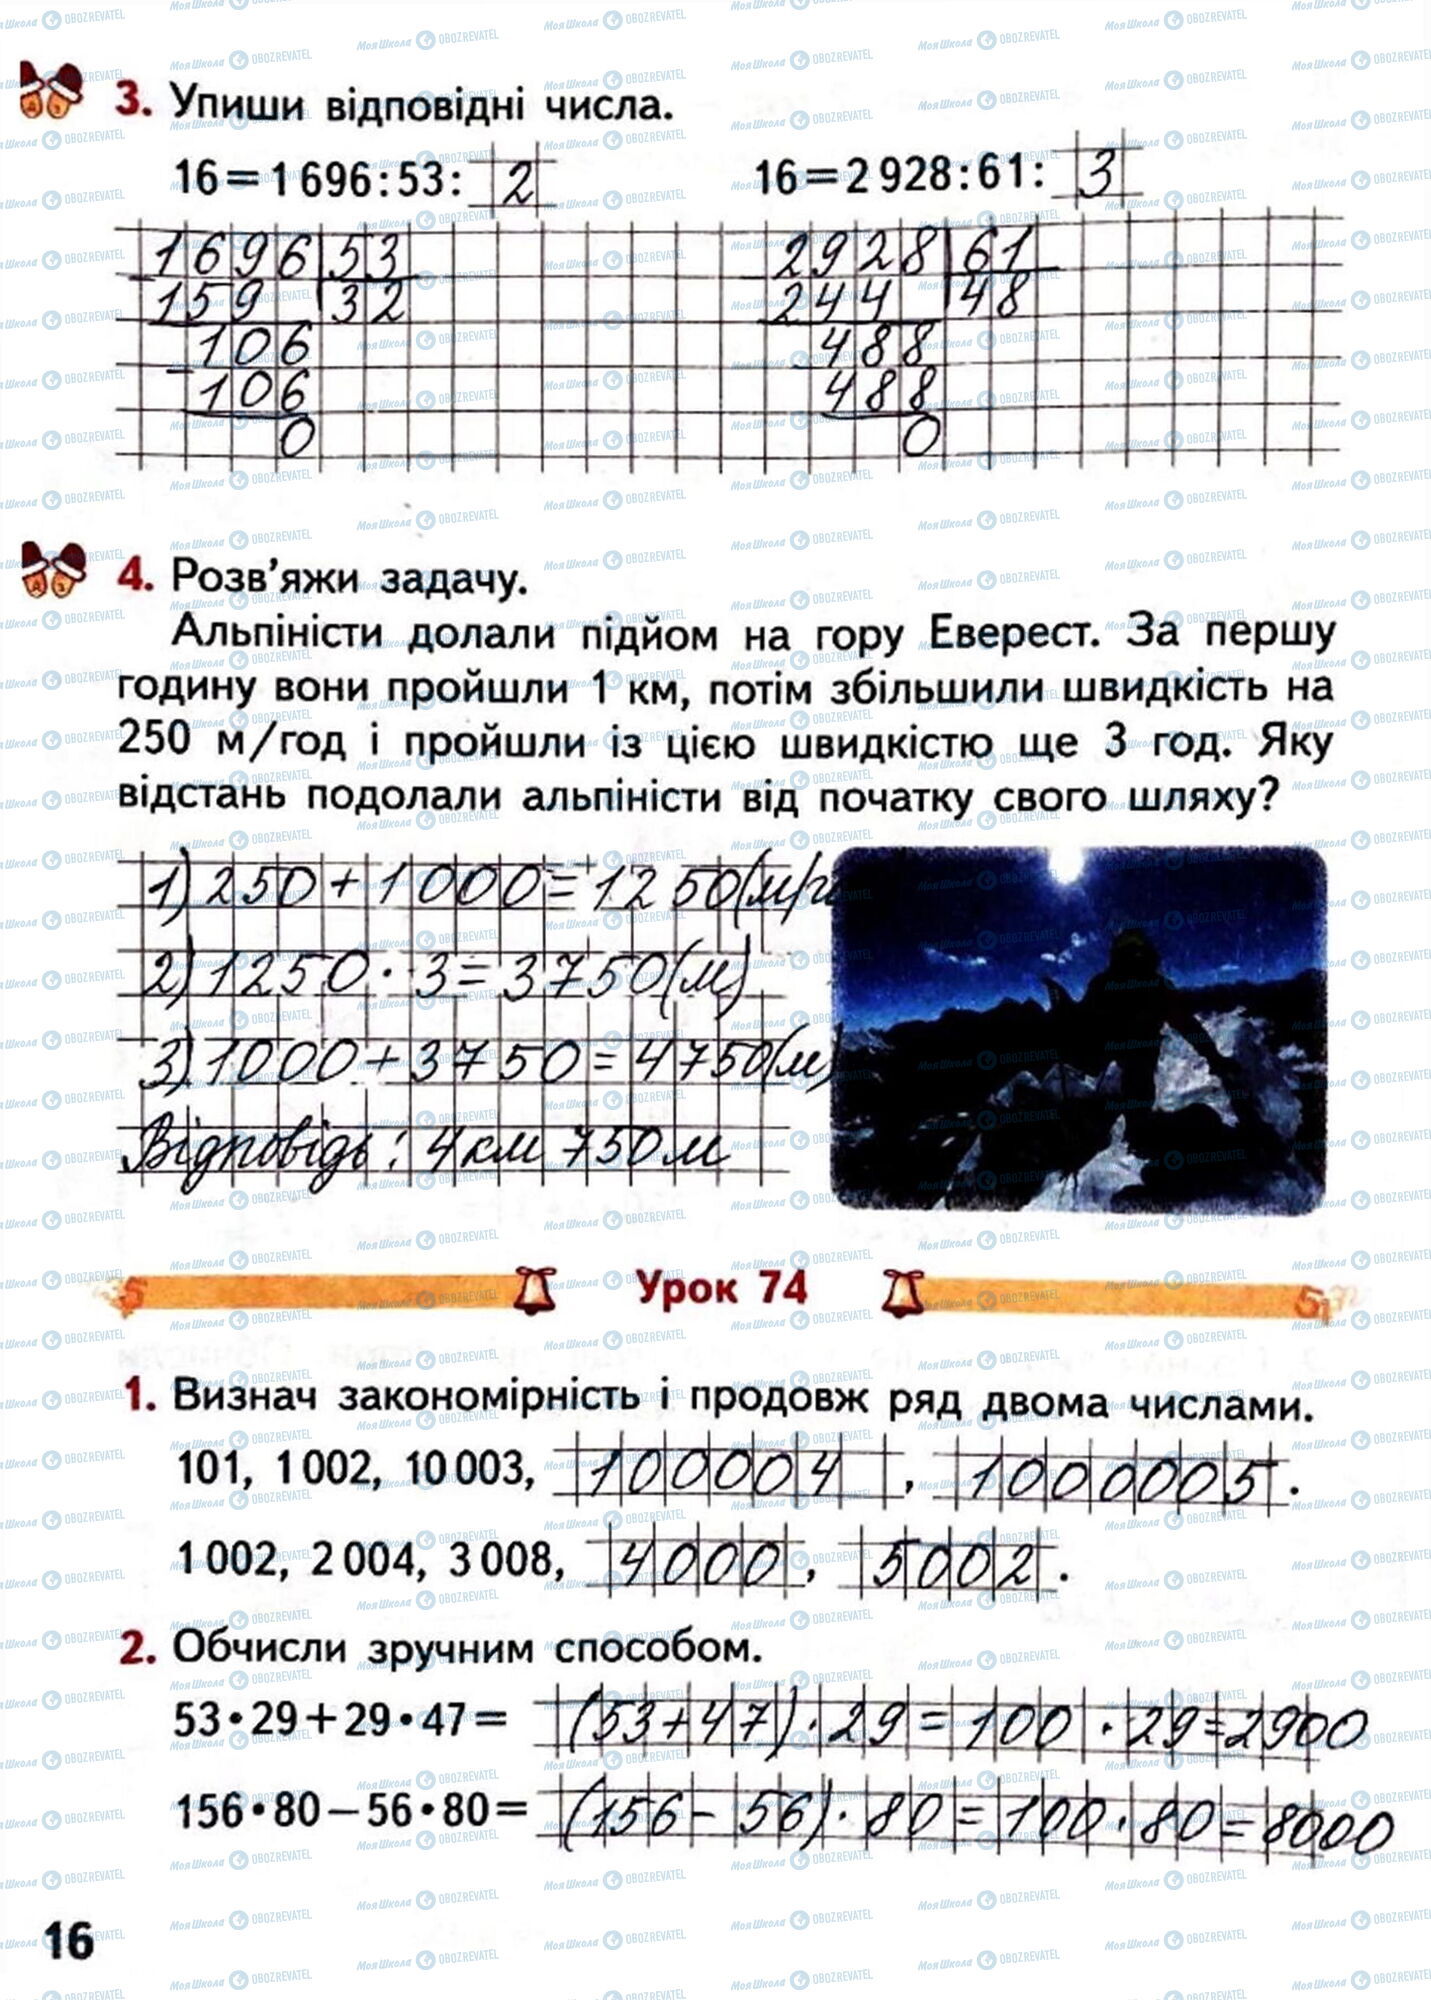 3. Упиши відповідні числа.
16=1 696:53: 2
16=2 928:61: 3
1696 53
159 32
106
106
0
2928 61
244 48
488
488
0
4. Розв'яжи задачу.
Альпіністи долали підйом на гору Еверест. За першу
годину вони пройшли 1 км, потім збільшили швидкість на
250 м/год і пройшли із цією швидкістю ще 3 год. Яку
відстань подолали альпіністи від початку свого шляху?
1) 250+1000=1250(м/г
2) 1250·3=3750(м)
3) 1000+3750=4750(м
Відповідь: 4 км 750 м
Урок 74
1. Визнач закономірність і продовж ряд двома числами.
101, 1 002, 10 003, 100004, 1000005.
1 002, 2 004, 3 008, 4000, 5002.
2. Обчисли зручним способом.
53•29+29•47= (53+47)·29=100·29=2900
156•80−56•80= (156−56)·80=100·80=8000
16